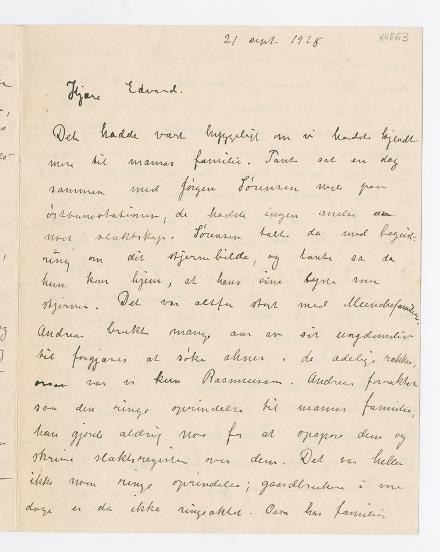 21 sept 1928 K4863
Kjære Edvard.
Det hadde vært hyggeligt om vi hadde kjendt
mere til mamas familie. Tante sat en dag
sammen med Jørgen Sørensen paa
østbanestationen, de hadde ingen anelse om
noet slæktskap. Sørensen talte da med begeist-
ring om dit stjernebilde, og tante sa da
hun kom hjem, at hans øine lyste som
stjerner. Det var altfor stort med Munchefamilien,
Andreas brukte mange aar av sit ungdomsliv
til forgjæves at søke ahner i de adelige rækker,
var vi kun Rasmussen. Andreas foraktet
saa den ringe oprindelse til mamas familie,
han gjorde aldrig noe for at opspore dem og
skrive slæktsregister over dem. Det var heller
ikke noen ringe oprindelse; gaardbruken i vore
dage er da ikke ringeaktet. Ossa har familie